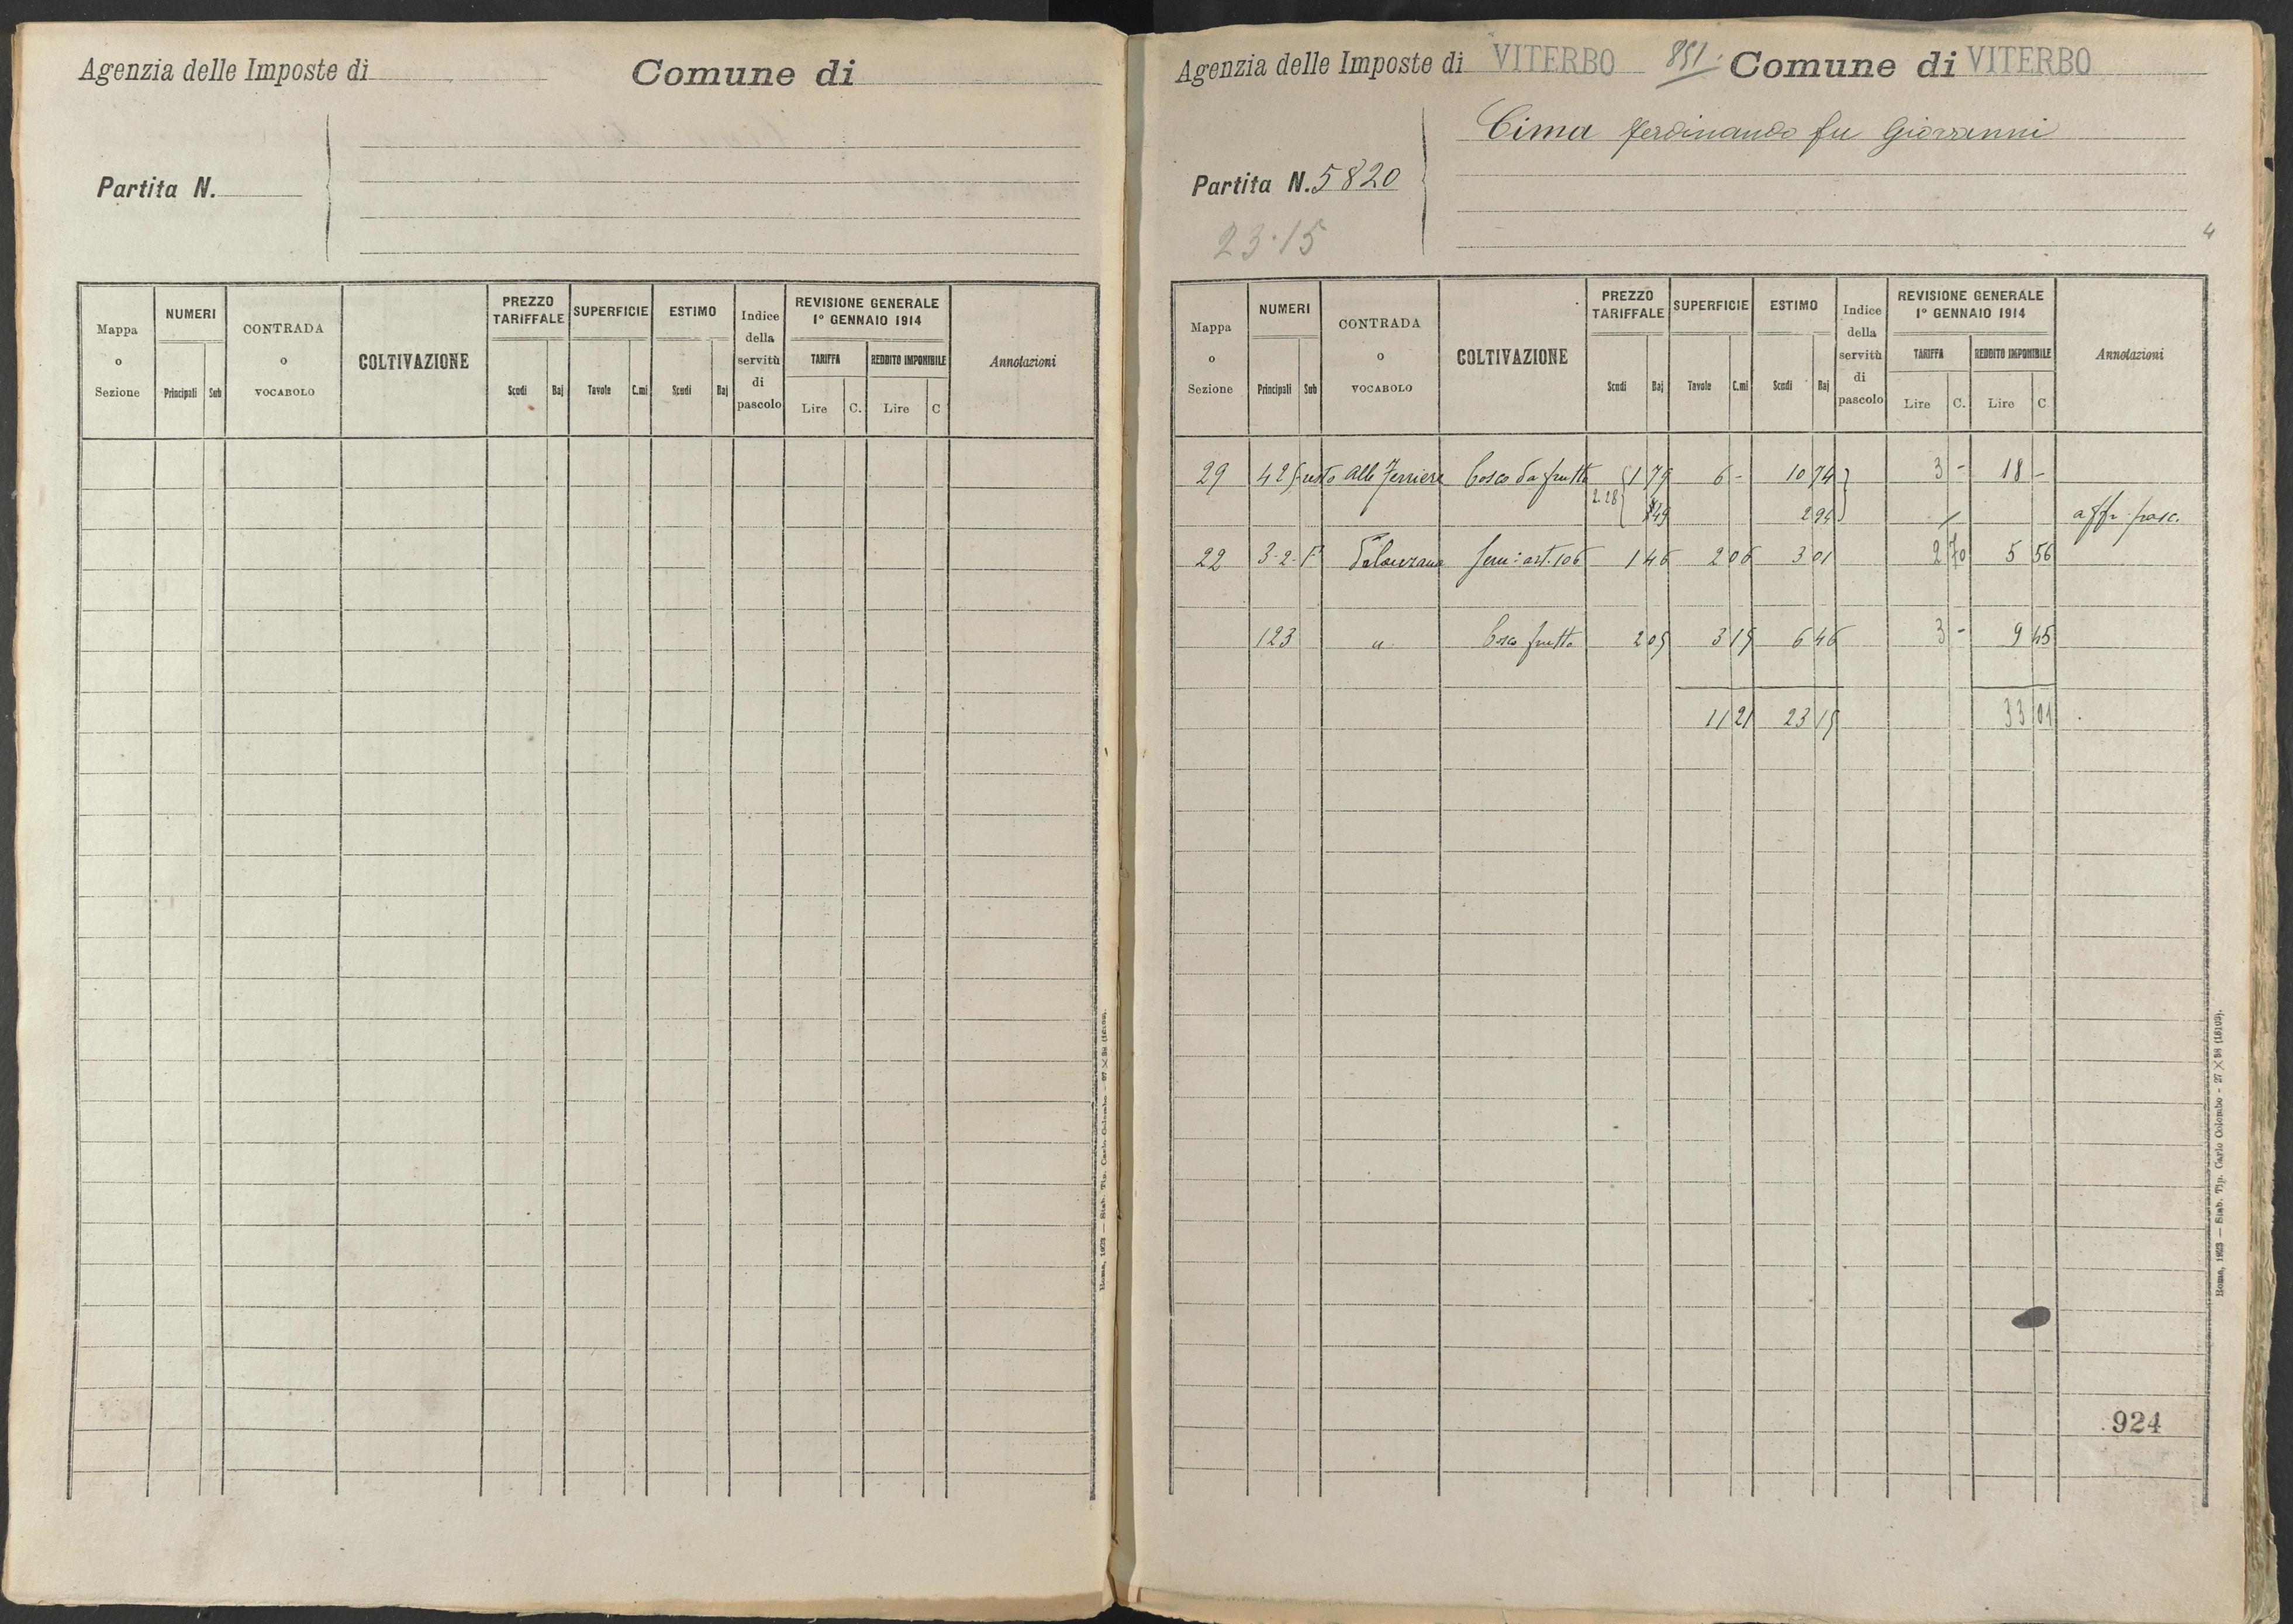 Agenzia delle Imposte di Comune di
Partita N.
Mappa o Sezione NUMERI Principali Sub CONTRADA o VOCABOLO COLTIVAZIONE PREZZO TARIFFALE Scudi Baj SUPERFICIE Tavole C.mi ESTIMO Scudi Baj Indice della servitù di pascolo REVISIONE GENERALE 1° GENNAIO 1914 TARIFFA Lire C. REDDITO IMPONIBILE Lire C Annotazioni
Roma, 1923 — Stab. Tip. Carlo Colombo - 27 X 38 (16109).
Agenzia delle Imposte di VITERBO 851 Comune di VITERBO
Cima Ferdinando fu Giovanni
Partita N. 5820
23.15
4
Mappa o Sezione NUMERI Principali Sub CONTRADA o VOCABOLO COLTIVAZIONE PREZZO TARIFFALE Scudi Baj SUPERFICIE Tavole C.mi ESTIMO Scudi Baj Indice della servitù di pascolo REVISIONE GENERALE 1° GENNAIO 1914 TARIFFA Lire C. REDDITO IMPONIBILE Lire C. Annotazioni
29 425 resto alle Ferriere bosco da frutto 1 79 6 - 10 74 3 - 18 -
2.28 49 2 94 affr. pasc.
22 3-2-1° art. 106 1 46 2 06 3 01 2 70 5 56
123 " bosco frutto 2 05 3 15 6 46 3 - 9 45
11 21 23 15 33 01
924
Roma, 1923 — Stab. Tip. Carlo Colombo - 27 X 38 (16109).